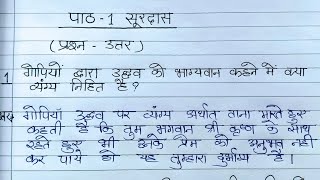 पाठ - 1 सूरदास
(प्रश्न - उतर)
1 गोपियों द्वारा उद्धव को भाग्यवान कहने में क्या
व्यंग्य निहित है ?
गोपियां उद्धव पर व्यंग्य अर्थात ताना मारते हुए
कहती है कि तुम भगवान श्री कृष्ण के साथ
रहते हुए भी उनके प्रेम को अनुभव नही
कर पाये हो यह तुम्हारा दुर्भाग्य है ।